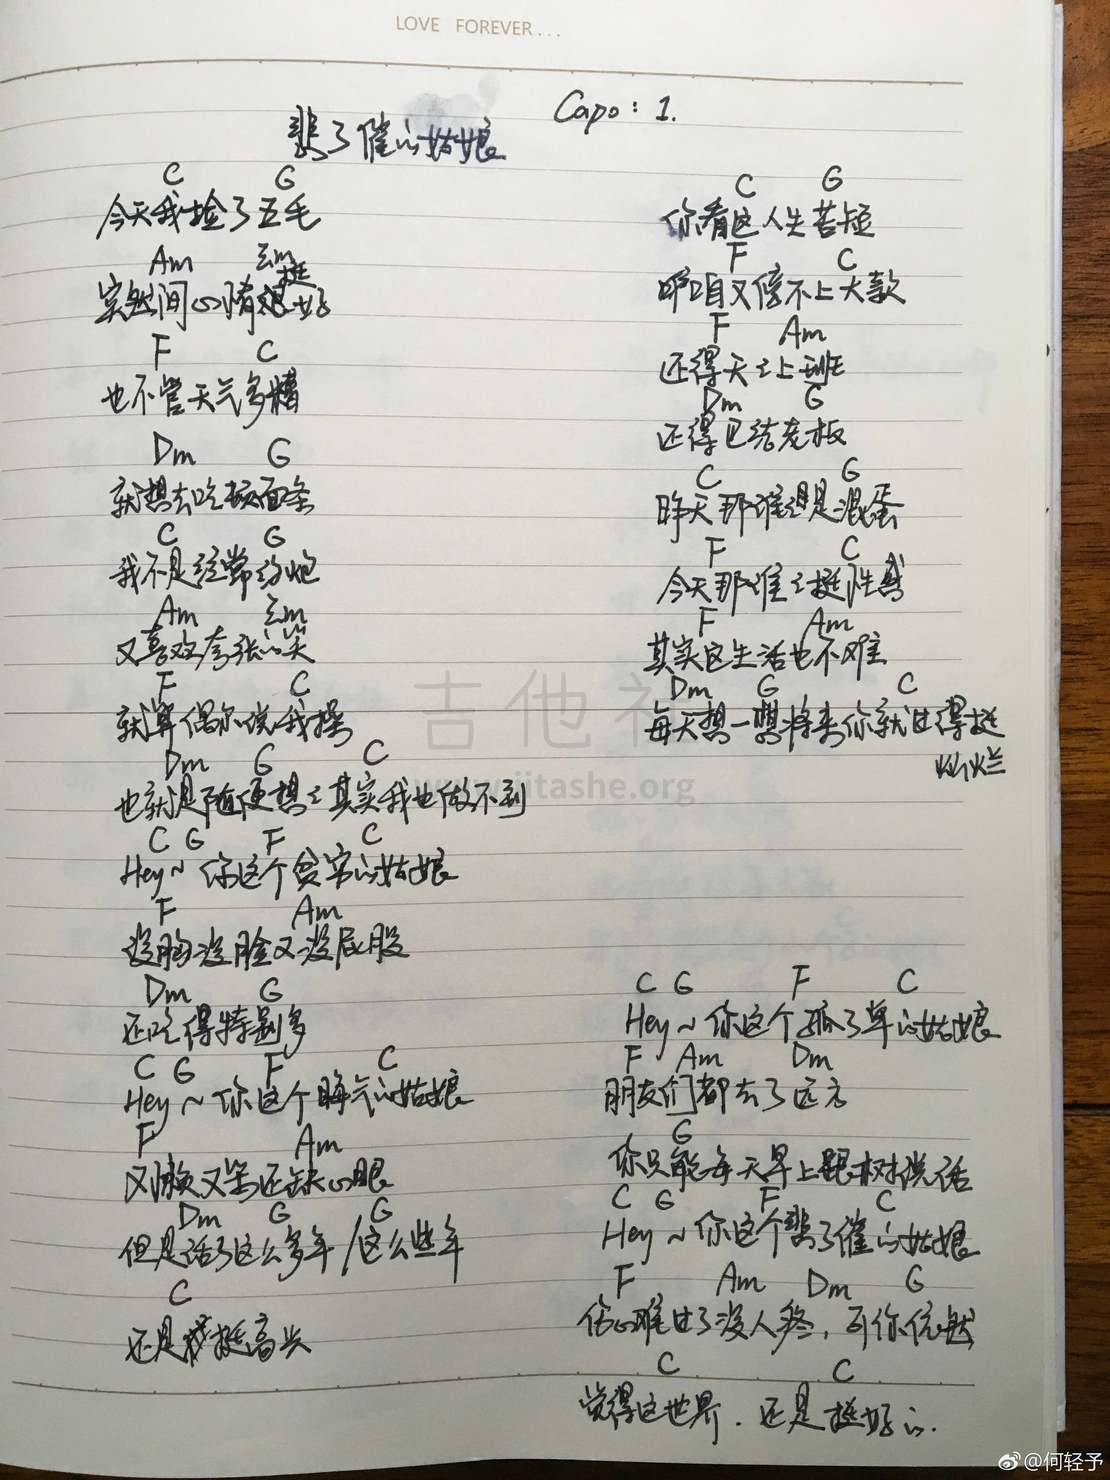 LOVE FOREVER...
悲了催的姑娘
Capo: 1.
C G
今天我捡了五毛
Am Em
突然间心情挺好
F C
也不管天气多糟
Dm G
就想去吃顿面条
C G
我不是经常约炮
Am Em
又喜欢夸张的笑
F C
就算偶尔说我操
Dm G C
也就是随便想想其实我也做不到
C G F C
Hey~ 你这个贫穷的姑娘
F Am
没胸没脸又没屁股
Dm G
还吃得特别多
C G F C
Hey~ 你这个晦气的姑娘
F Am
又懒又笨还缺心眼
Dm G G
但是活了这么多年/这么些年
C
还是挺高兴
C G
你看这人生苦短
F C
咱又傍不上大款
F Am
还得天天上班
Dm G
还得巴结老板
C G
昨天那谁还是混蛋
F C
今天那谁谁挺性感
F Am
其实这生活也不难
Dm G C
每天想一想将来你就过得挺
灿烂
C G F C
Hey~ 你这个孤了单的姑娘
F Am Dm
朋友们都去了远方
G
你只能每天早上跟树说话
C G F C
Hey~ 你这个悲了催的姑娘
F Am Dm G
伤心难过了没人疼,可你依然
C C
觉得这世界.还是挺好的.
吉他社
www.jitashe.org
@何轻予